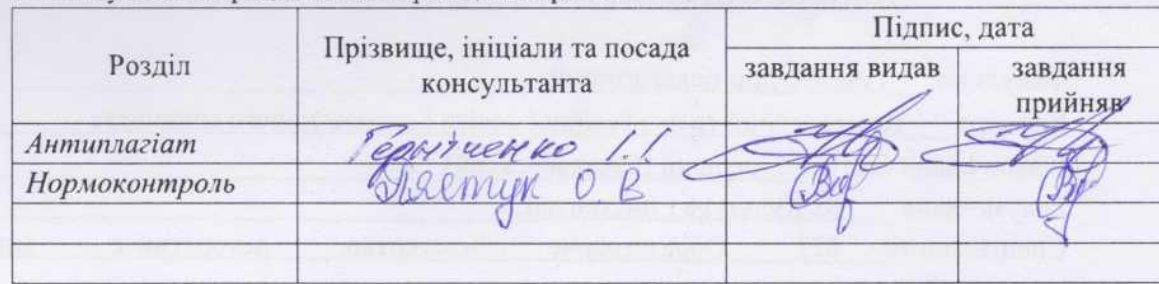 Розділ
Прізвище, ініціали та посада
консультанта
Підпис, дата
завдання видав
завдання
прийняв
Антиплагіат
І.І.
Нормоконтроль
О. В